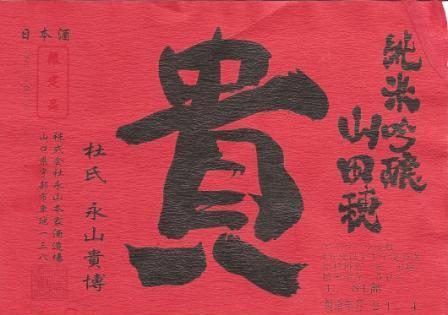 純米吟醸
山田穂
貴
杜氏 永山貴博
日本酒
限定品
株式会社永山本家酒造場
山口県宇部市車地一三八
製造年月 21.4